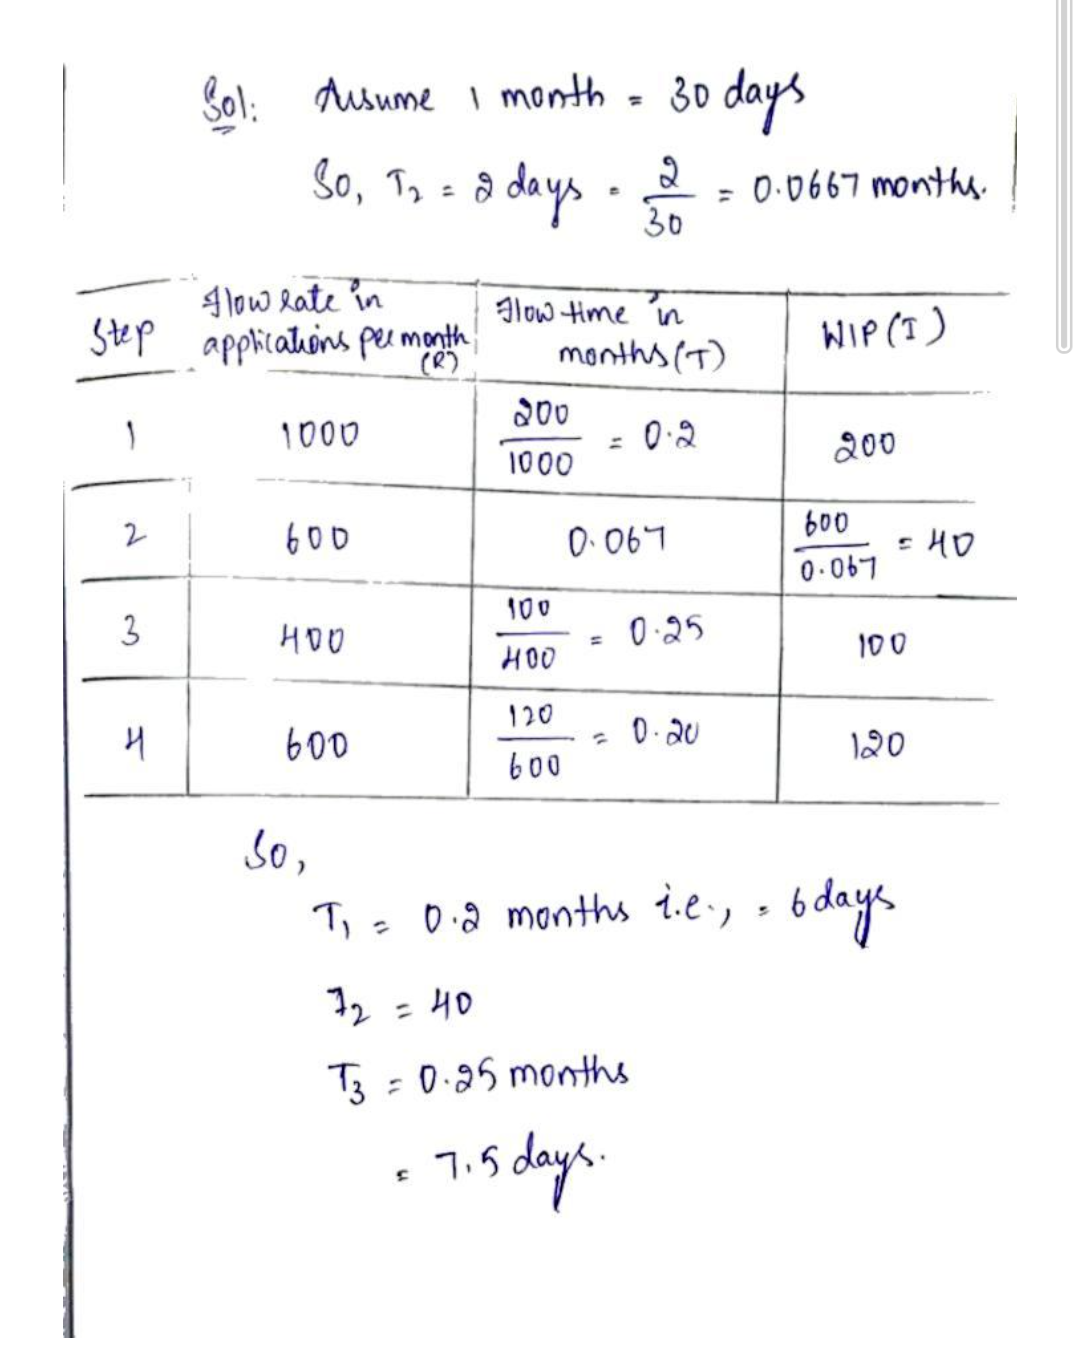 Sol: Assume 1 month = 30 days
So, T2 = 2 days = 2/30 = 0.0667 months.
Step | Flow rate in applications per month (R) | Flow time in months (T) | WIP (I)
1 | 1000 | 200/1000 = 0.2 | 200
2 | 600 | 0.067 | 600/0.067 = 40
3 | 400 | 100/400 = 0.25 | 100
4 | 600 | 120/600 = 0.20 | 120
So,
T1 = 0.2 months i.e., = 6 days
I2 = 40
T3 = 0.25 months
= 7.5 days.